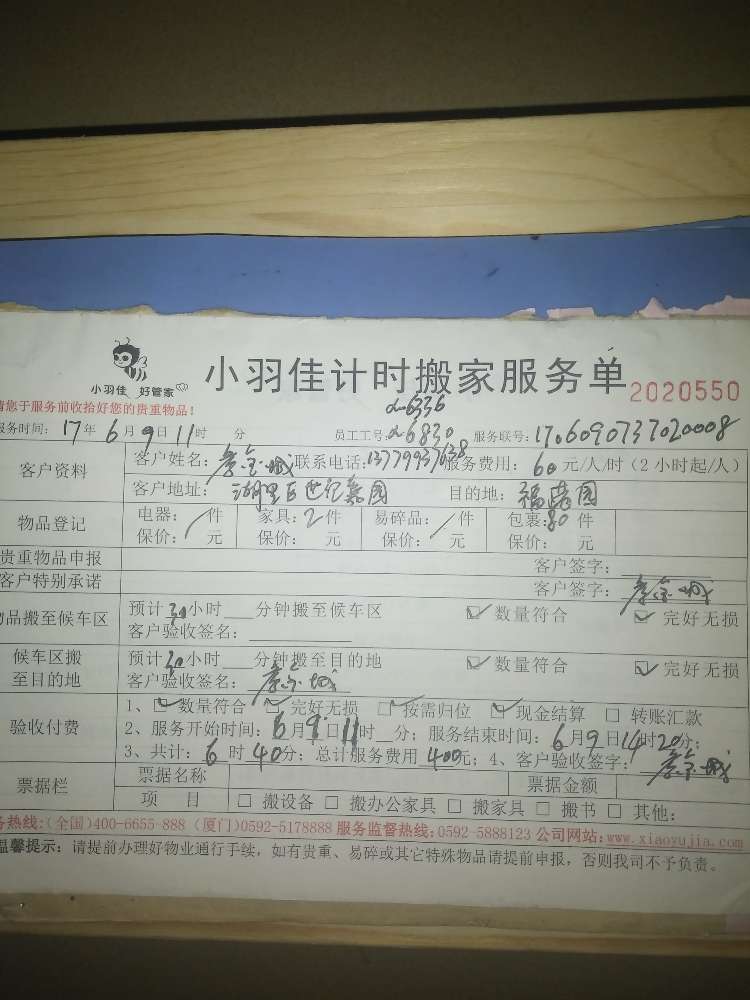 小羽佳 好管家
小羽佳计时搬家服务单 2020550
请您于服务前收拾好您的贵重物品！
α-6336
服务时间：17年6月9日11时 分 员工工号：α-6830 服务联号：1706090737020008
客户资料
客户姓名： 联系电话：13779937638 服务费用：60元/人/时（2小时起/人）
客户地址：湖里区世纪嘉园 目的地：福满园
物品登记
电器：/件 家具：2件 易碎品：/件 包裹：80件
保价： 元 保价： 元 保价： 元 保价： 元
贵重物品申报 客户签字：
客户特别承诺 客户签字：
物品搬至候车区
预计30小时 分钟搬至候车区 ☑数量符合 ☑完好无损
客户验收签名：
候车区搬至目的地
预计30小时 分钟搬至目的地 ☑数量符合 ☑完好无损
客户验收签名：
验收付费
1、☑数量符合 ☑完好无损 ☑按需归位 ☑现金结算 □转账汇款
2、服务开始时间：6月9日11时 分；服务结束时间：6月9日14时20分；
3、共计：6时40分；总计服务费用400元；4、客户验收签字：
票据栏
票据名称 票据金额
项 目 □搬设备 □搬办公家具 □搬家具 □搬书 □其他：
务热线：(全国)400-6655-888 (厦门)0592-5178888 服务监督热线：0592-5888123 公司网站：www.xiaoyujia.com
温馨提示：请提前办理好物业通行手续，如有贵重、易碎或其它特殊物品请提前申报，否则我司不予负责。